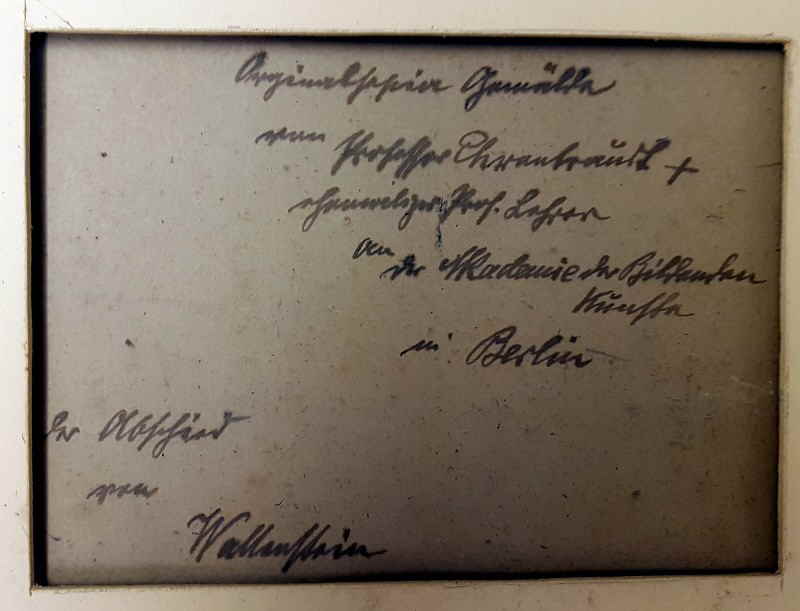 Orginalsepia Gemälde
von Professor Ehrentraudt +
ehemaliger Prof. Lehrer
an
der Akadamie der Bildenden
Künste
in Berlin
der Abschied
von
Wallenstein